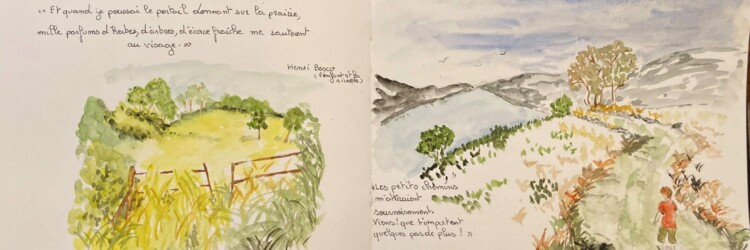 « Et quand je poussai le portail donnant sur la prairie,
mille parfums d'herbes, d'arbres, d'écorce fraîche me sautèrent
au visage. »
Henri Bosco
(l'enfant et la
rivière)
« Les petits chemins
m'attiraient
sournoisement.
Viens ! que t'importent
quelques pas de plus ? »